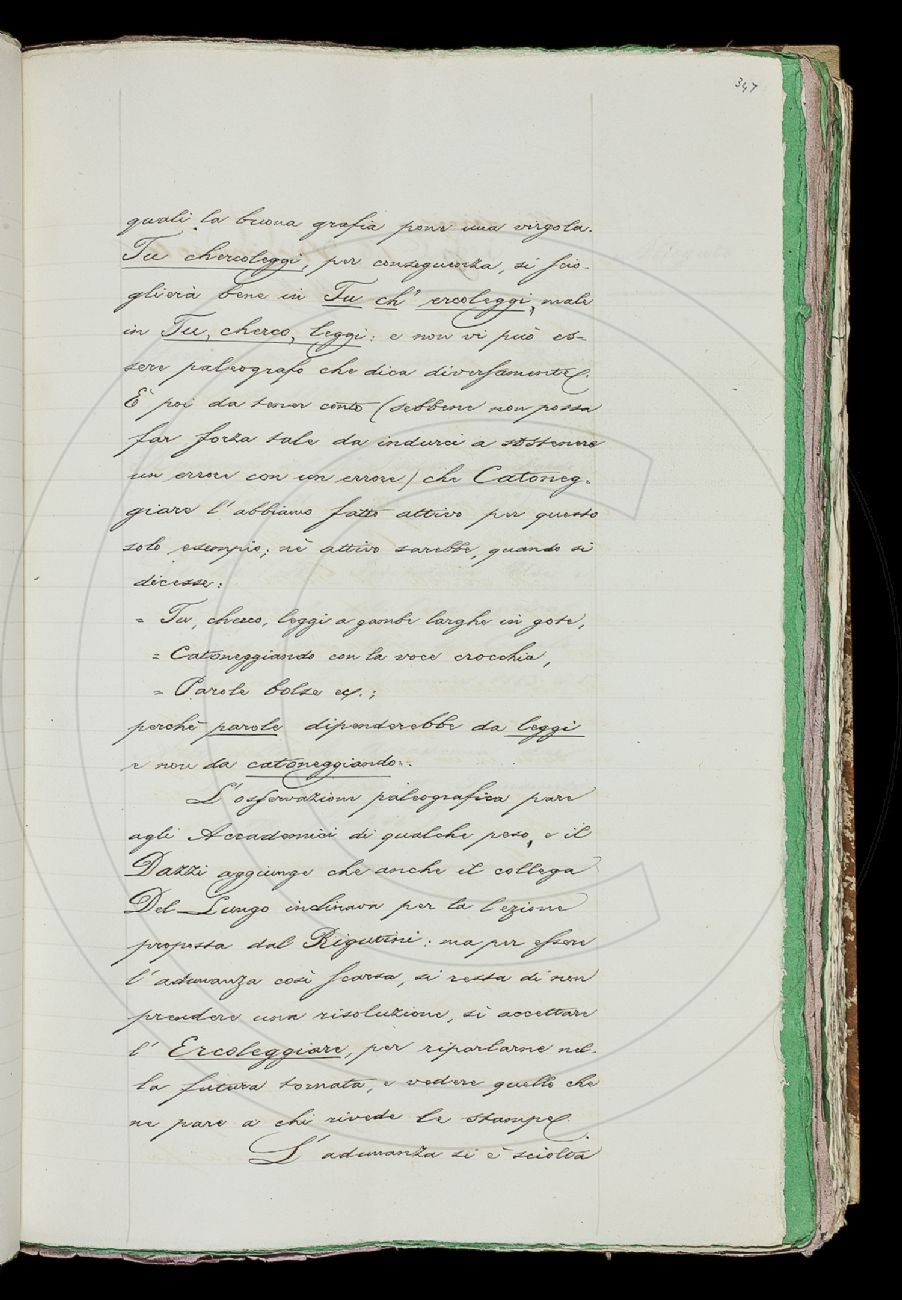 347
quali la buona grafia pone una virgola.
Tu chercoleggi, per conseguenza, si scio-
glierà bene in Tu ch' ercoleggi, male
in Tu, cherco, leggi: e non vi può es-
sere paleografo che dica diversamente.
È poi da tener conto (sebbene non possa
far forza tale da indurci a sostenere
un errore con un errore) che Catoneg-
giare l'abbiamo fatto attivo per questo
solo esempio; nè attivo sarebbe, quando si
dicesse:
= Tu, cherco, leggi a gambe larghe in gote,
= Catoneggiando con la voce crocchia,
= Parole bolse ec.;
perchè parole dipenderebbe da leggi
e non da catoneggiando.
L'osservazione paleografica pare
agli Accademici di qualche peso, e il
Dazzi aggiunge che anche il collega
Del Lungo inclinava per la lezione
proposta dal Rigutini: ma per essere
l'adunanza così scarsa, si resta di non
prendere una risoluzione, si accettare
l' Ercoleggiare, per riparlarne nel-
la futura tornata, e vedere quello che
ne pare a chi rivede le stampe.
L'adunanza si è sciolta